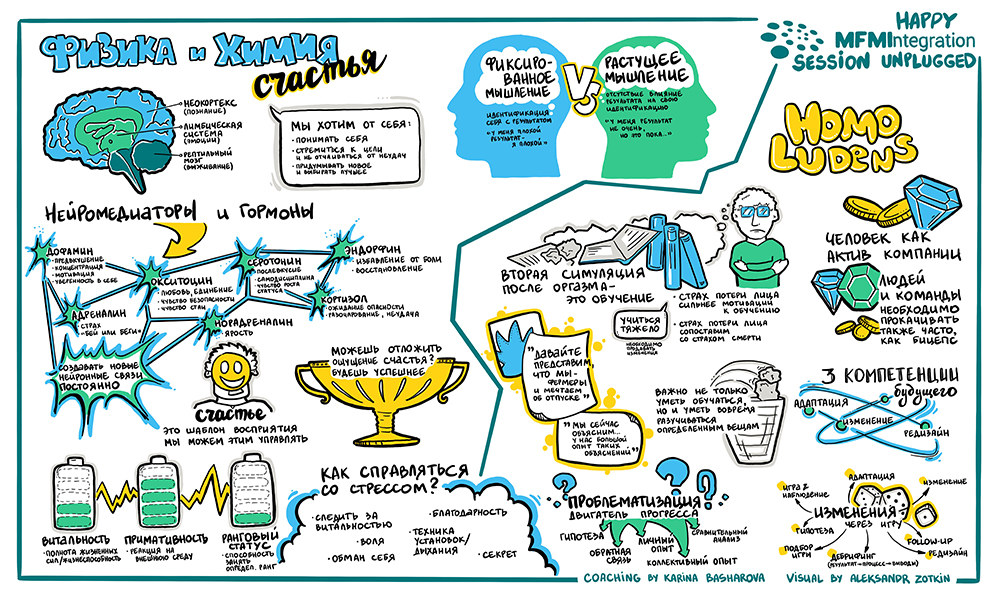 Физика и Химия
счастья
НЕОКОРТЕКС
(ПОЗНАНИЕ)
ЛИМБИЧЕСКАЯ
СИСТЕМА
(ЭМОЦИИ)
РЕПТИЛЬНЫЙ
МОЗГ
(ВЫЖИВАНИЕ)
МЫ ХОТИМ ОТ СЕБЯ:
· ПОНИМАТЬ СЕБЯ
· СТРЕМИТЬСЯ К ЦЕЛИ
И НЕ ОТЧАИВАТЬСЯ ОТ НЕУДАЧ
· ПРИДУМЫВАТЬ НОВОЕ
И ВЫБИРАТЬ ЛУЧШЕЕ
ФИКСИРО-
ВАННОЕ
МЫШЛЕНИЕ
ИДЕНТИФИКАЦИЯ
СЕБЯ С РЕЗУЛЬТАТОМ
"У МЕНЯ ПЛОХОЙ
РЕЗУЛЬТАТ-
Я ПЛОХОЙ"
VS
РАСТУЩЕЕ
МЫШЛЕНИЕ
ОТСУТСТВИЕ ВЛИЯНИЕ
РЕЗУЛЬТАТА НА СВОЮ
ИДЕНТИФИКАЦИЮ
"У МЕНЯ РЕЗУЛЬТАТ
НЕ ОЧЕНЬ,
НО ЭТО ПОКА..."
HAPPY
MFMIntegration
SESSION UNPLUGGED
НЕЙРОМЕДИАТОРЫ И ГОРМОНЫ
ДОФАМИН
· ПРЕДВКУШЕНИЕ
· КОНЦЕНТРАЦИЯ
· МОТИВАЦИЯ
· УВЕРЕННОСТЬ В СЕБЕ
ОКСИТОЦИН
· ЛЮБОВЬ, ЕДИНЕНИЕ
· ЧУВСТВО БЕЗОПАСНОСТИ
· ЧУВСТВО СТАИ
СЕРОТОНИН
· ПОСЛЕВКУСИЕ
· САМОДИСЦИПЛИНА
· ЧУВСТВО РОСТА
СТАТУСА
ЭНДОРФИН
· ИЗБАВЛЕНИЕ ОТ БОЛИ
· ВОССТАНОВЛЕНИЕ
АДРЕНАЛИН
· СТРАХ
· «БЕЙ ИЛИ БЕГИ»
НОРАДРЕНАЛИН
· ЯРОСТЬ
КОРТИЗОЛ
· ОЖИДАНИЕ ОПАСНОСТИ
· РАЗОЧАРОВАНИЕ, НЕУДАЧА
СОЗДАВАТЬ НОВЫЕ
НЕЙРОННЫЕ СВЯЗИ
ПОСТОЯННО
счастье
ЭТО ШАБЛОН ВОСПРИЯТИЯ
МЫ МОЖЕМ ЭТИМ УПРАВЛЯТЬ
МОЖЕШЬ ОТЛОЖИТЬ
ОЩУЩЕНИЕ СЧАСТЬЯ?
БУДЕШЬ УСПЕШНЕЕ
ВИТАЛЬНОСТЬ
· ПОЛНОТА ЖИЗНЕННЫХ
СИЛ/ЖИЗНЕСПОСОБНОСТЬ
ПРИМАТИВНОСТЬ
· РЕАКЦИЯ НА
ВНЕШНЮЮ СРЕДУ
РАНГОВЫЙ
СТАТУС
· СПОСОБНОСТЬ
ЗАНЯТЬ
ОПРЕДЕЛ. РАНГ
КАК СПРАВЛЯТЬСЯ
СО СТРЕССОМ?
· СЛЕДИТЬ ЗА
ВИТАЛЬНОСТЬЮ
· ВОЛЯ
· ОБМАН СЕБЯ
· БЛАГОДАРНОСТЬ
· ТЕХНИКА
УСТАНОВОК/
ДЫХАНИЯ
· СЕКРЕТ
HOMO
LUDENS
ВТОРАЯ СИМУЛЯЦИЯ
ПОСЛЕ ОРГАЗМА-
ЭТО ОБУЧЕНИЕ
УЧИТЬСЯ
ТЯЖЕЛО
НЕОБХОДИМО
ПРОДАВАТЬ
ИЗМЕНЕНИЯ
· СТРАХ ПОТЕРИ ЛИЦА
СИЛЬНЕЕ МОТИВАЦИИ
К ОБУЧЕНИЮ
· СТРАХ ПОТЕРИ ЛИЦА
СОПОСТАВИМ
СО СТРАХОМ СМЕРТИ
"ДАВАЙТЕ
ПРЕДСТАВИМ,
ЧТО МЫ-
ФЕРМЕРЫ
И МЕЧТАЕМ
ОБ ОТПУСКЕ"
"МЫ СЕЙЧАС
ОБЪЯСНИМ...
У НАС БОЛЬШОЙ
ОПЫТ ТАКИХ
ОБЪЯСНЕНИЙ"
ВАЖНО НЕ ТОЛЬКО
УМЕТЬ ОБУЧАТЬСЯ,
НО И УМЕТЬ ВОВРЕМЯ
РАЗУЧИВАТЬСЯ
ОПРЕДЕЛЕННЫМ ВЕЩАМ
ЧЕЛОВЕК КАК
АКТИВ КОМПАНИИ
ЛЮДЕЙ
И КОМАНДЫ
НЕОБХОДИМО
ПРОКАЧИВАТЬ
ТАКЖЕ ЧАСТО,
КАК БИЦЕПС
3 КОМПЕТЕНЦИИ
будущего
АДАПТАЦИЯ
ИЗМЕНЕНИЕ
РЕДИЗАЙН
? ? ? ?
ПРОБЛЕМАТИЗАЦИЯ
ДВИГАТЕЛЬ ПРОГРЕССА
ГИПОТЕЗА
ОБРАТНАЯ
СВЯЗЬ
ЛИЧНЫЙ
ОПЫТ
СРАВНИТЕЛЬНЫЙ
АНАЛИЗ
КОЛЛЕКТИВНЫЙ ОПЫТ
АДАПТАЦИЯ
ИЗМЕНЕНИЕ
ИГРА &
НАБЛЮДЕНИЕ
ИЗМЕНЕНИЯ
ЧЕРЕЗ ИГРУ
ГИПОТЕЗА
FOLLOW-UP
ПОДБОР
ИГРЫ
РЕДИЗАЙН
ДЕБРИФИНГ
(РЕЗУЛЬТАТ→ПРОЦЕСС→ВЫВОДЫ)
COACHING BY KARINA BASHAROVA VISUAL BY ALEKSANDR ZOTKIN